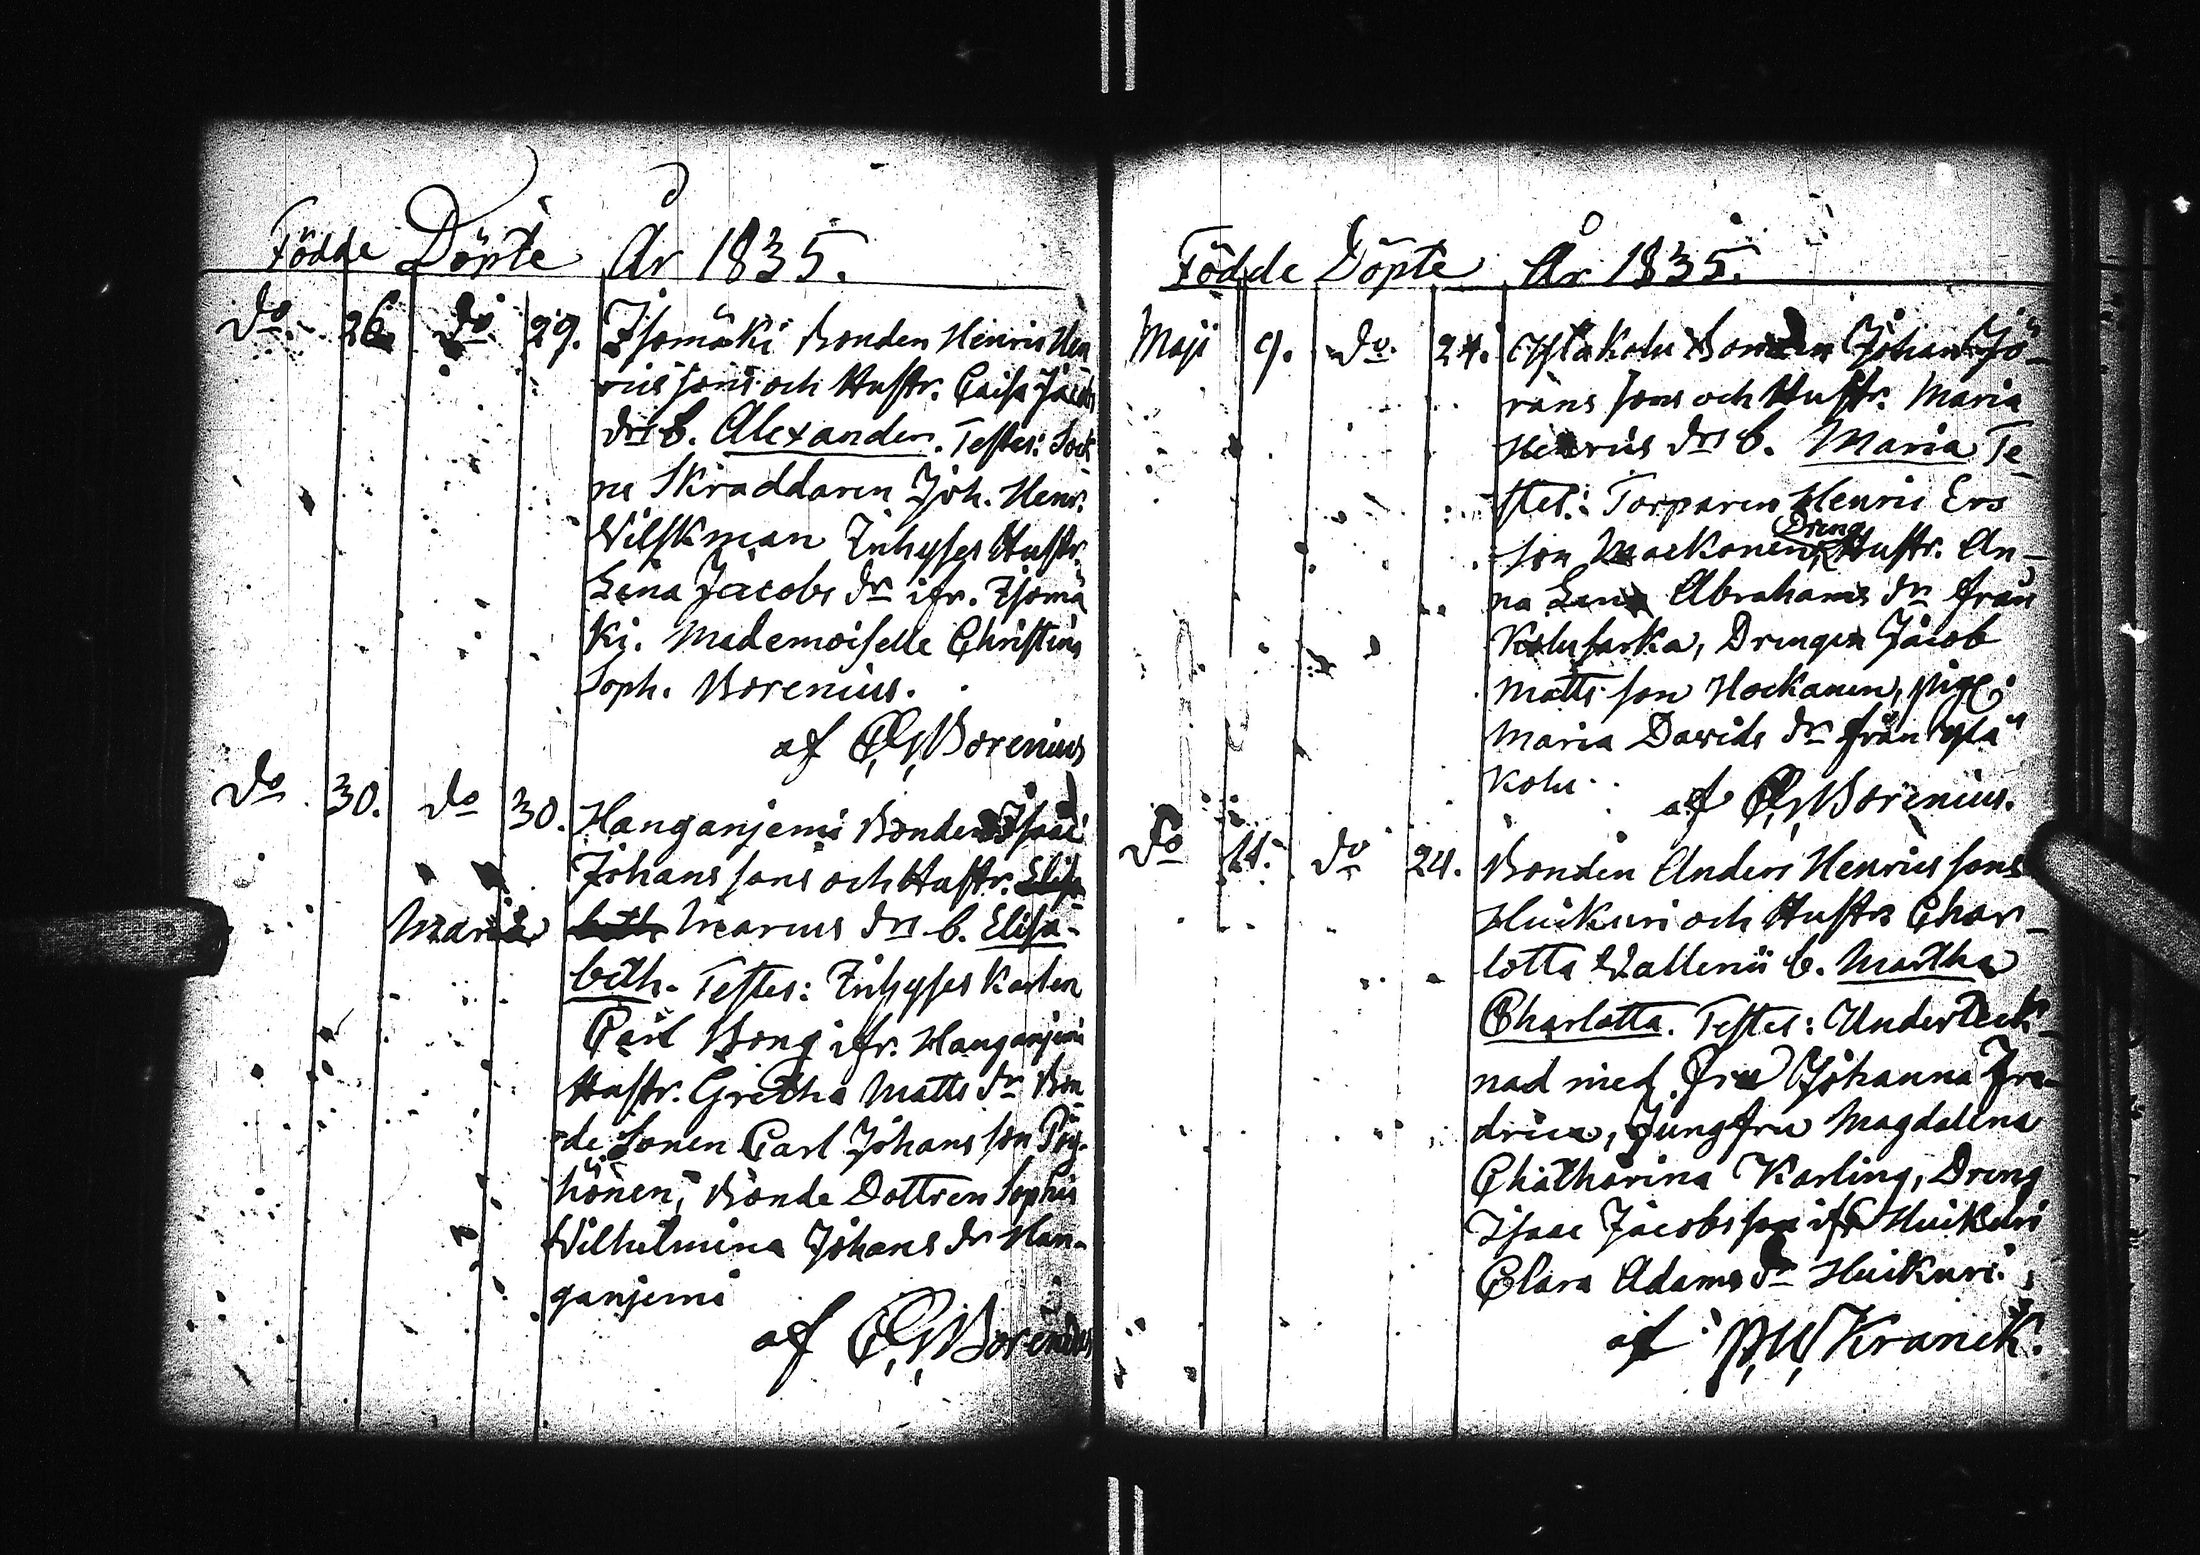 Födde Döpte År 1835.
do 26 do 29. Isomäki Bonden Henric Hen
rics sons och Hustr. Caisa Jacobs
drs b. Alexander. Testes: Sock
ne Skräddaren Joh. Henr.
Vilskman Inhyses Hustr.
Lena Jacobs dr ifr. Isomä
ki. Mademoiselle Christina
Soph. Borenius.
af C. G. Borenius
do 30. do 30. Hanganjemi Bonden Isaac
Johans sons och Hustr. Elisa
beth Marcus drs b. Elisa-
beth. Testes: Inhyses Karlen
Carl Bong ifr. Hanganjemi
Hustr. Gretha Matts dr Bon
de Sonen Carl Johans son Pöy-
hönen, Bonde Dottren Sophia
Wilhelmina Johans dr Han-
ganjemi
af C. G. Borenius
Födde Döpte År 1835.
Maji 9. do. 24. Yläkolu Bonden Johan Jö-
rans sons och Hustr. Maria
Henrics drs b. Maria Te-
stes: Torparen Henric Ers
Dreng
son Mackonen, Hustr. An-
na Lena Abrahams dr från
Kolusarka, Drengen Jacob
Matts son Hockanen, pig.
Maria Davids dr från Ylä
kolu.
af C. G. Borenius.
do 14. do 24. Bonden Anders Henrics sons
Huikuri och Hustrs Char-
lotta Wallenii b. Martha
Charlotta. Testes: Underteck-
nad med Fru Johanna Fre-
drica, Jungfru Magdalena
Chatharina Karling, Dreng
Isaac Jacobs son ifr Huikuri
Clara Adams dr Huikuri.
af P. W. Kranck.